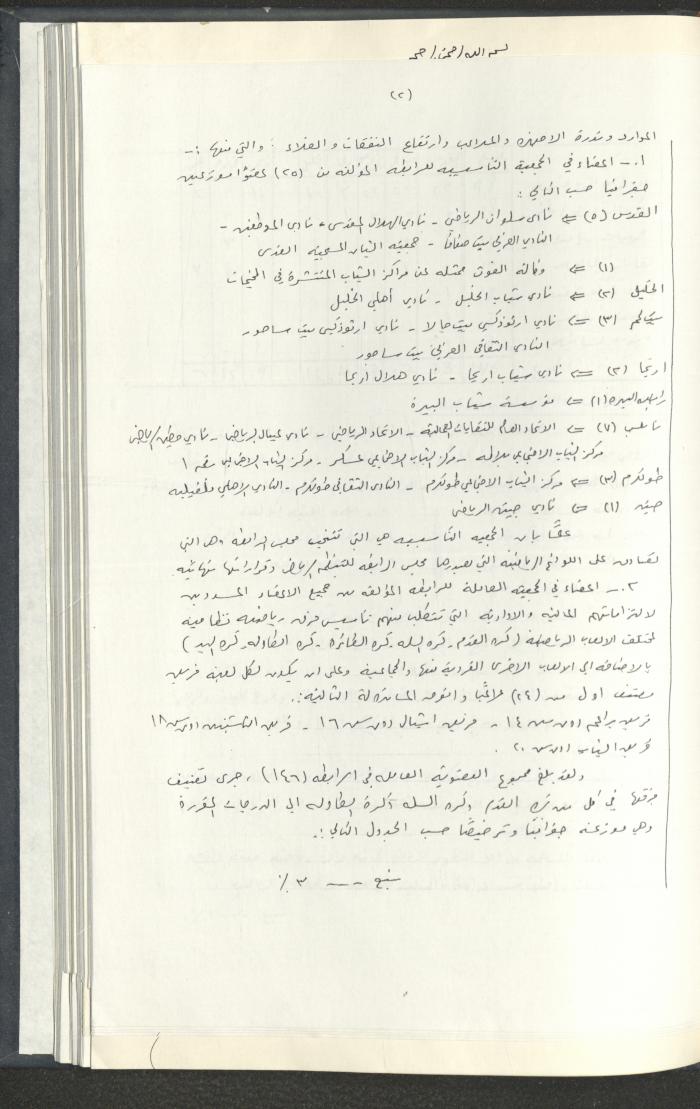 بسم الله الرحمن الرحيم
(٢)
الموارد وندرة الاجهزه والملاعب وارتفاع النفقات والغلاء : والتي منها :-
١.- اعضاء في الجمعية التأسيسيه للرابطه المؤلفه من (٢٥) عضوًا موزعين
جغرافيا حسب التالي :
القدس (٥) <= نادي سلوان الرياضي - نادي الهلال المقدسي - نادي الموظفين -
النادي العربي بيت صفافا - جمعية الشبان المسيحية القدس
(١) <= وكالة الغوث ممثله عن مراكز الشباب المنتشرة في المخيمات
الخليل (٢) <= نادي شباب الخليل - نادي أهلي الخليل
بيت لحم (٣) <= نادي ارثوذكسي بيت جالا - نادي ارثوذكسي بيت ساحور
النادي الثقافي العربي بيت ساحور
اريحا (٢) <= نادي شباب اريحا - نادي هلال اريحا
رام الله البيرة (١) <= مؤسسة شباب البيرة
نابلس (٧) <= الاتحاد العام للنقابات العماليه - الاتحاد الرياضي - نادي عيبال الرياضي - نادي حطين الرياضي
مركز الشباب الاجتماعي بلاطه - مركز الشباب الاجتماعي عسكر - مركز الشباب الاجتماعي رقم ١
طولكرم (٣) <= مركز الشباب الاجتماعي طولكرم - النادي الثقافي طولكرم - النادي الاهلي قلقيليه
جنين (١) <= نادي جنين الرياضي
علمًا بان الجمعيه التأسيسيه هي التي تنتخب مجلس الرابطه وهي التي
تصادق على اللوائح الرياضية التي يصدرها مجلس الرابطه للتنظيم الرياضي وقراراتها نهائيه
٢.- اعضاء في الجمعيه العامة للرابطه المؤلفه من جميع الاعضاء المسددين
لالتزاماتهم الماليه والاداريه التي تتطلب منهم تأسيس فرق رياضيه نظاميه
لمختلف الالعاب الرياضية (كرة القدم - كرة السله - كرة الطائرة - كرة الطاولة - كرة اليد)
بالاضافه الى الالعاب الاخرى الفردية منها والجماعية وعلى ان يكون لكل لعبة فريق
مصنف أول من (٢٤) لاعبًا والفرق المساندة التالية :.
فريق براعم دون سن ١٤ - فريق اشبال دون سن ١٦ - فريق الناشئين دون سن ١٨
فريق الشباب دون سن ٢٠ .
ولقد بلغ مجموع العضوية العاملة في الرابطه (١٤٦) ، جرى تصنيف
فرقها في كل من كرة القدم وكرة السله وكرة الطاوله الى الدرجات المقررة
وهي موزعه جغرافيًا وترخيصًا حسب الجدول التالي :.
يتبع --- ٣ %